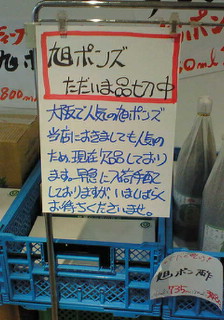 旭ポンズ
ただいま品切中
大阪で人気の旭ポンズ
当店におきましても人気の
ため、現在欠品しており
ます。早急に入荷手配
しておりますが、いましばらく
お待ちくださいませ。
旭ポン酢
735
800ml